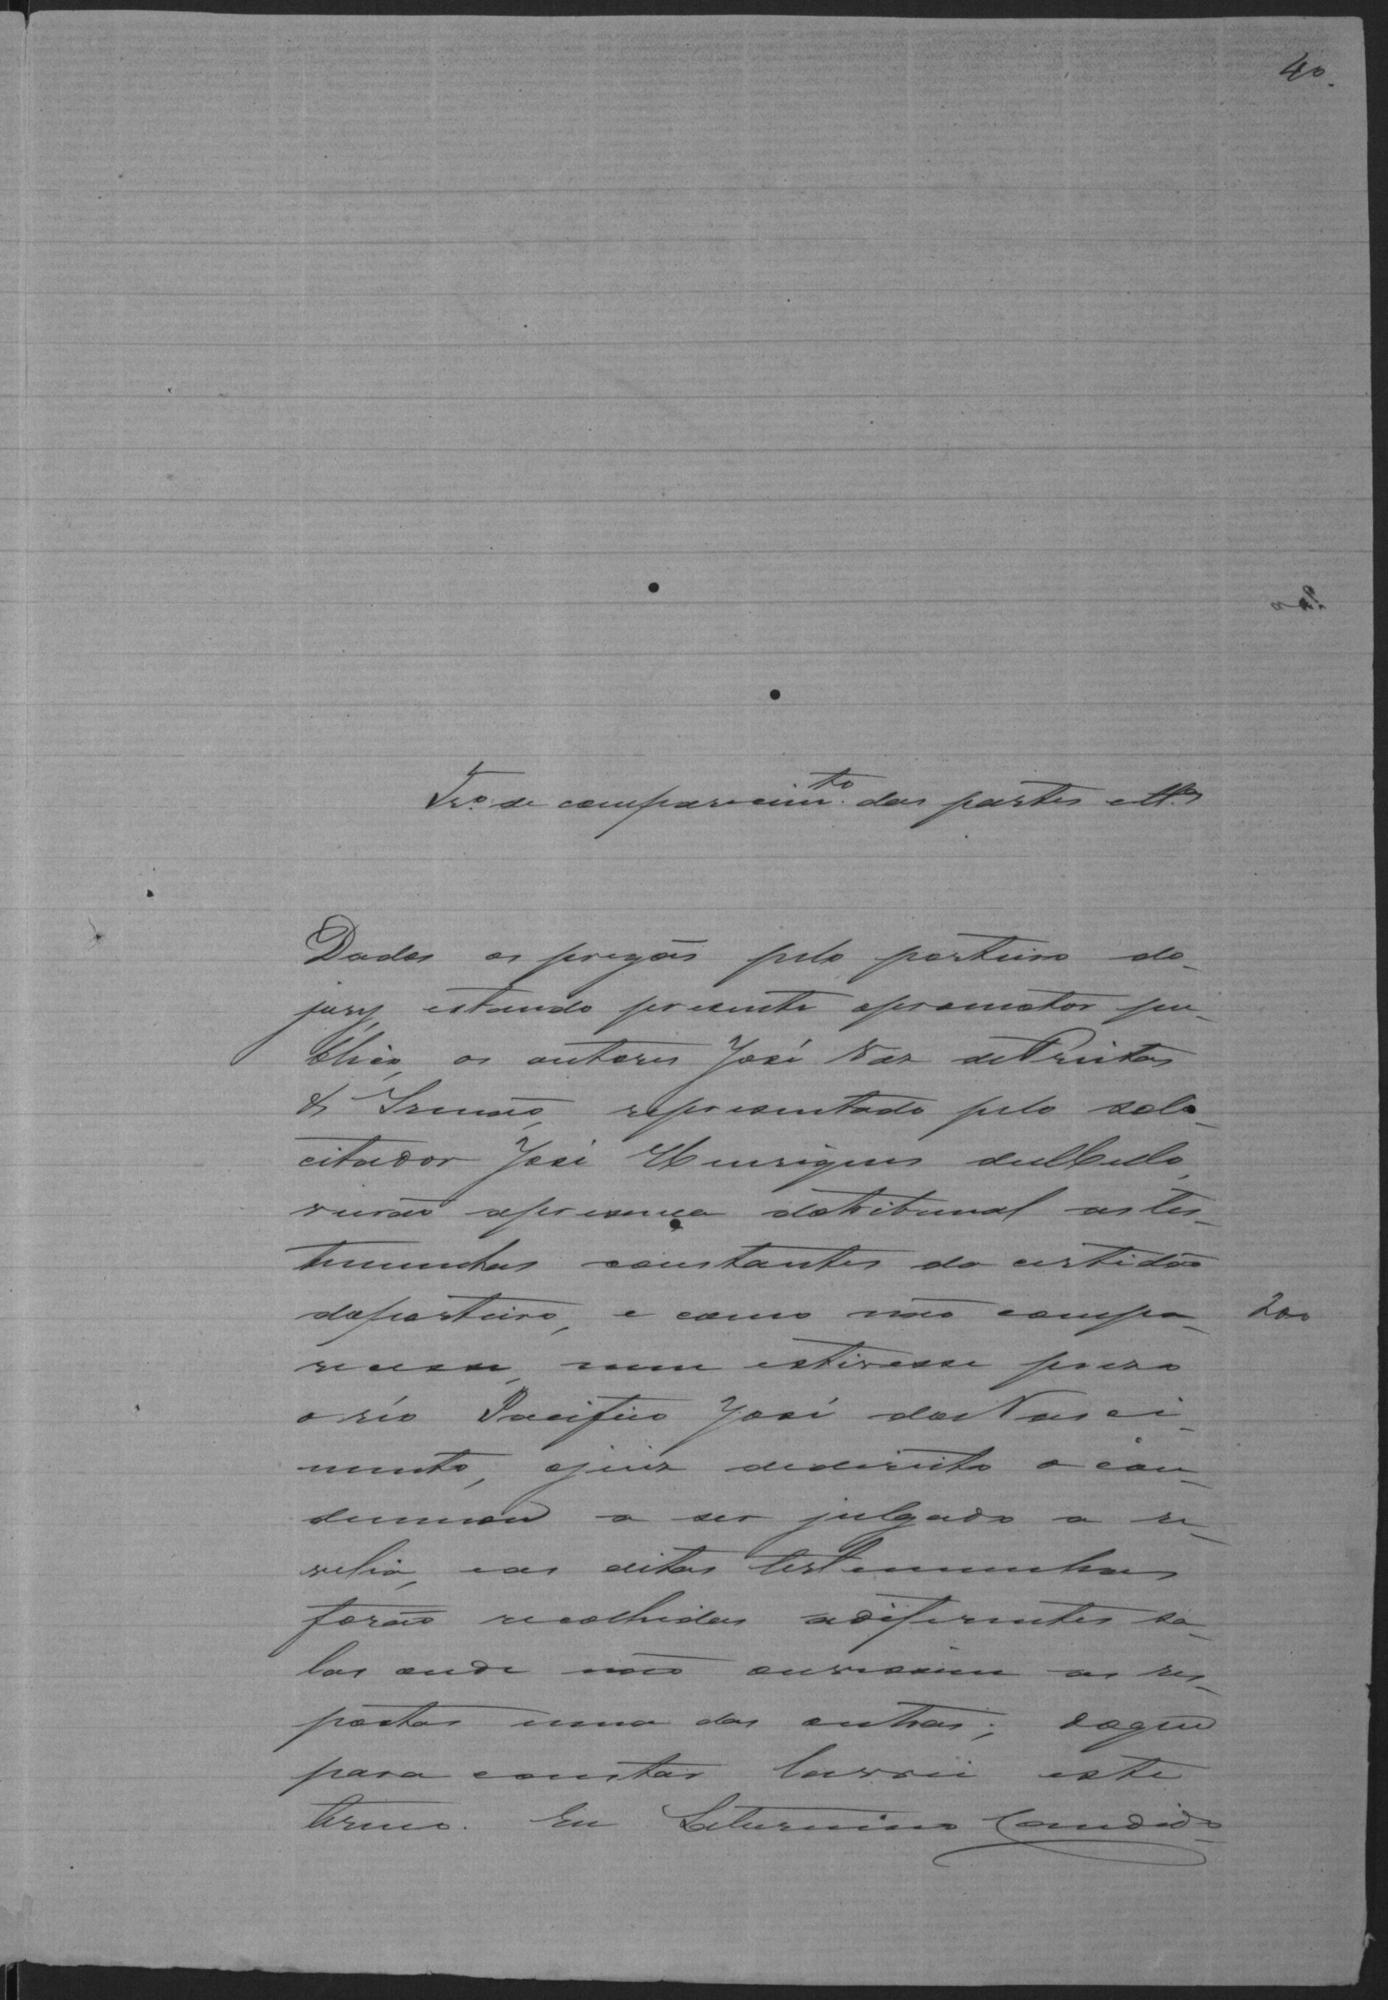 40.
Tr.º de comparecim.to das partes e tt.as
Dados os pregões pelo porteiro do
jury, estando presente o promotor pu-
blico, os autores José Vaz de Freitas
& Irmão, representado pelo soli-
citador José Henriques de Mello,
vierão a presença do tribunal as tes-
temunhas constantes da certidão
do porteiro, e como não compa-
recesse, nem estivesse prezo
o réo Pacifico José do Nasci-
mento, o juiz de direito o con-
demnou a ser julgado a re-
velia, e as ditas testemunhas
forão recolhidas a differentes sa-
las onde não ouvissem as res-
postas uma das outras; do que
para constar lavrei este
termo. Eu Saturnino Candido
200